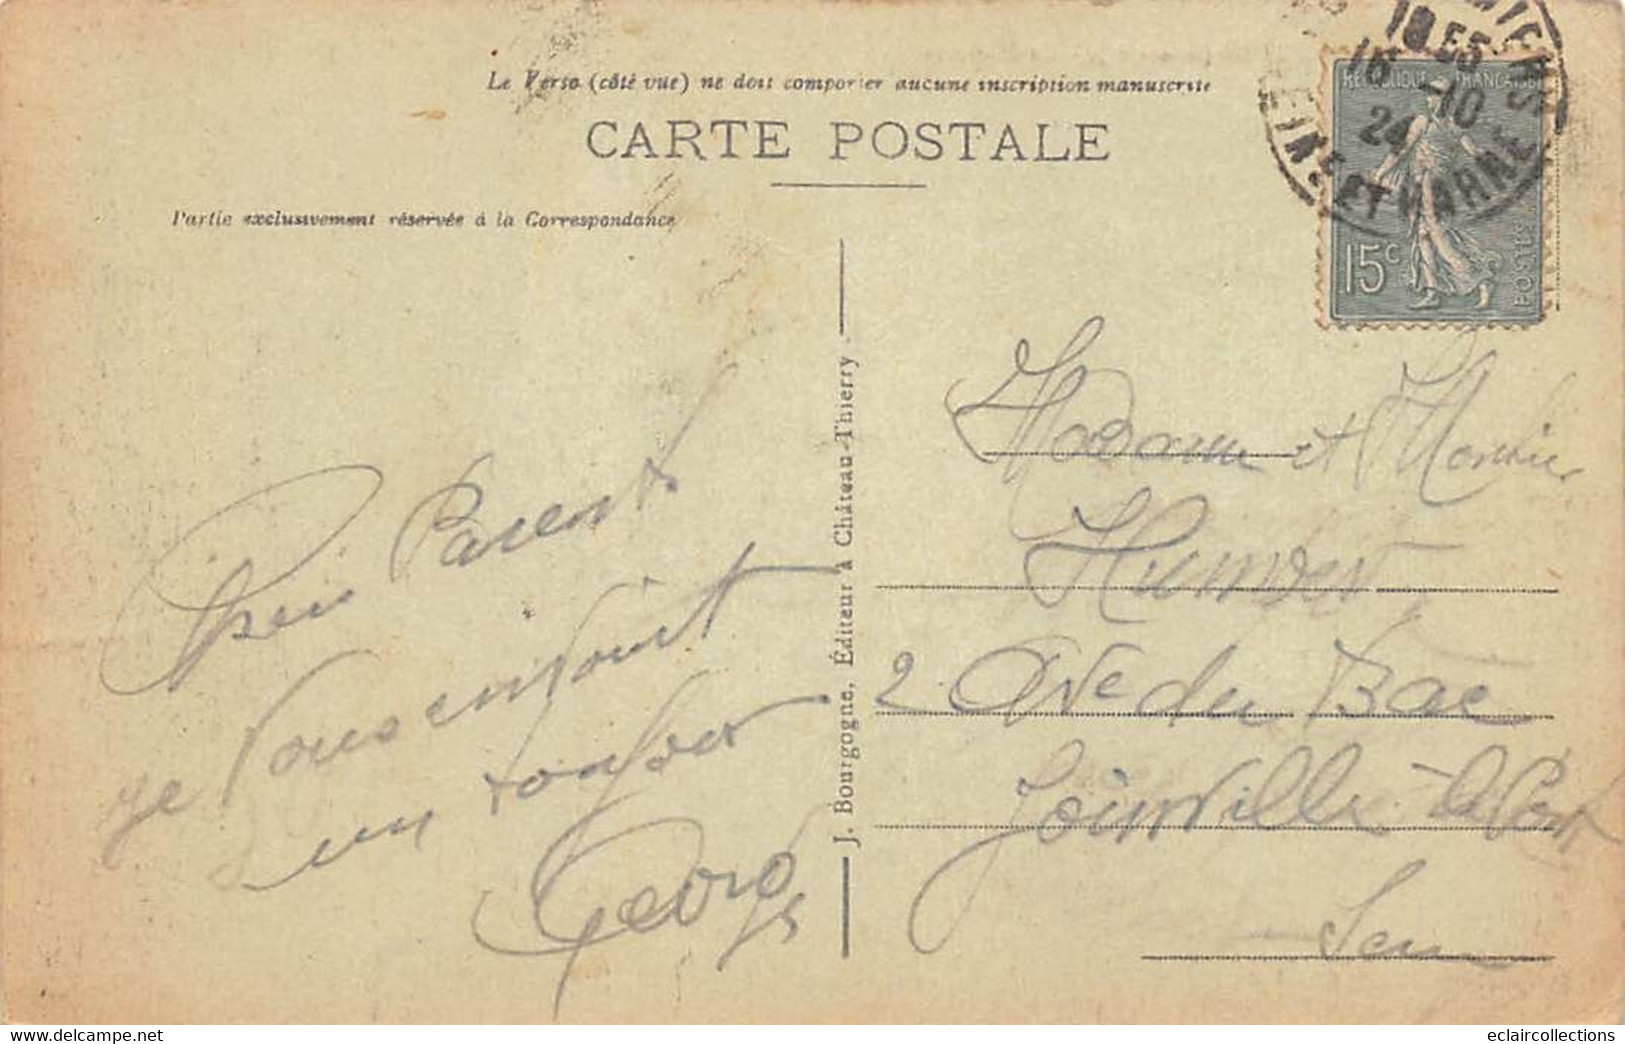 Le Verso (côté vue) ne doit comporter aucune inscription manuscrite
CARTE POSTALE
Partie exclusivement réservée à la Correspondance
RÉPUBLIQUE FRANÇAISE
15c
POSTES
-10
24
SEINE ET MARNE
J. Bourgogne, Éditeur à Château-Thierry
Parents
je vous
un bonjour
Georges
Madame et Monsieur
Humbert
2 Ave du Bac
Joinville-le-Pont
Seine
www.delcampe.net
eclaircollections